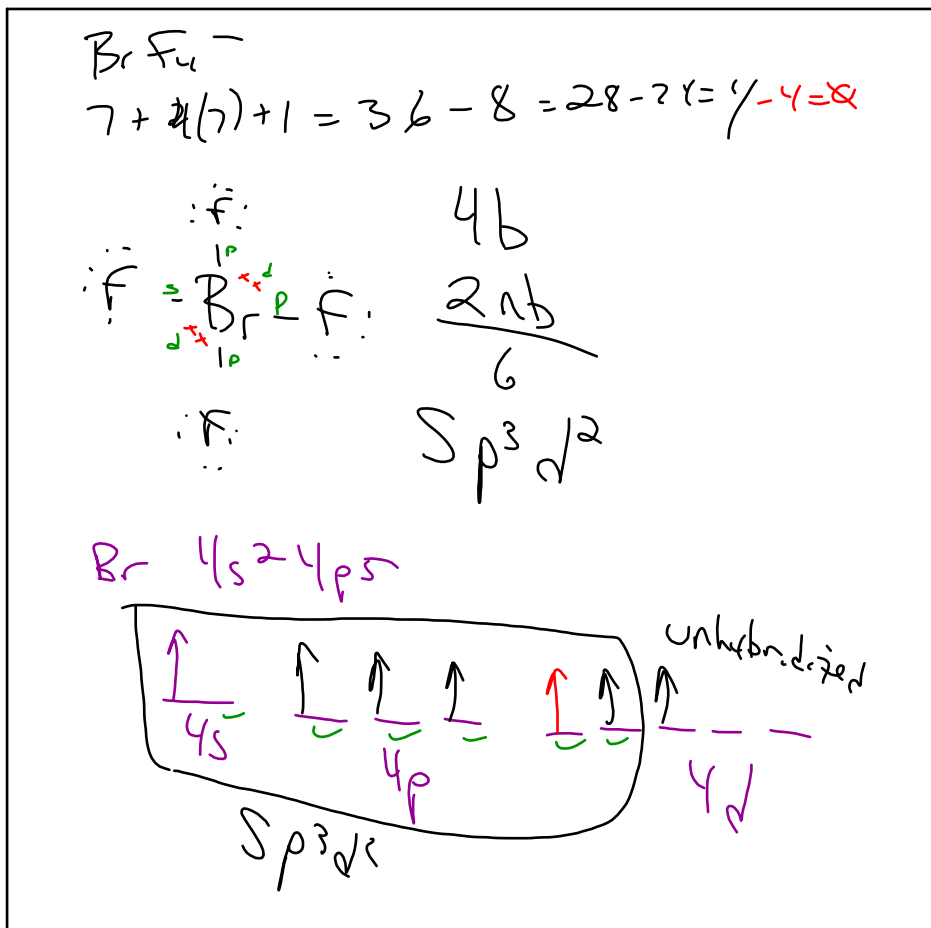 BrF4⁻
7 + 4(7) + 1 = 36 - 8 = 28 - 24 = 4 - 4 = 0
:F:
| p
:F s - Br p - F: d
d
| p
:F:
4b
2nb
6
Sp³d²
Br 4s² 4p5
unhybridized
4s 4p 4d
Sp³d²